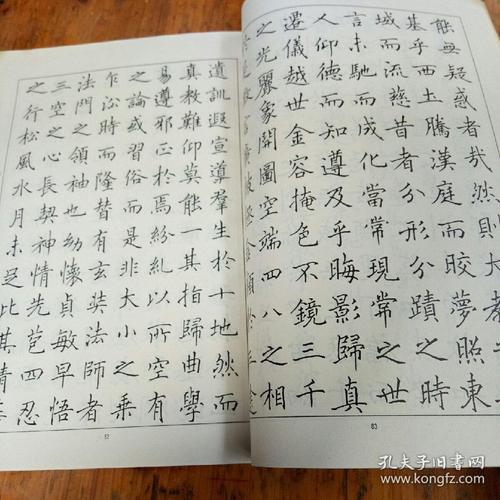 能無疑惑者哉然則大教
基乎西土騰漢庭而皎夢照東
域而流慈昔者分形分蹟之時
言未馳而成化當常現常之世
人仰德而知遵及乎晦影歸真
遷儀越世金容掩色不鏡三千
之光麗象開圖空端四八之相
是廣被拯含類於三途
83
遺訓遐宣導羣生於十地然而
真教難仰莫能一其指歸曲學
易遵邪正於焉紛糺以所空有
之論或習俗而是非大小之乘
乍沿時而隆替有玄奘法師者
法門之領袖也幼懷貞敏早悟
三空之心長契神情先苞四忍
之行松風水月未足比其清
孔夫子旧书网
kongfz.com